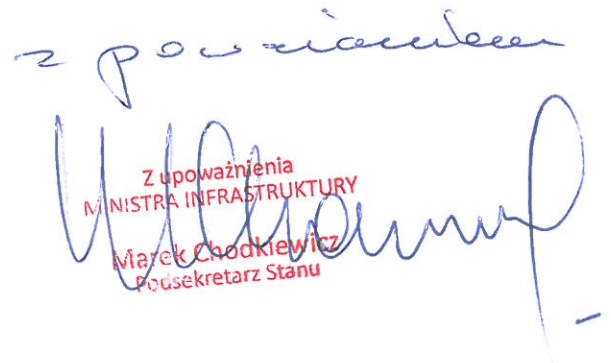 z poważaniem
Z upoważnienia
MINISTRA INFRASTRUKTURY
Marek Chodkiewicz
Podsekretarz Stanu